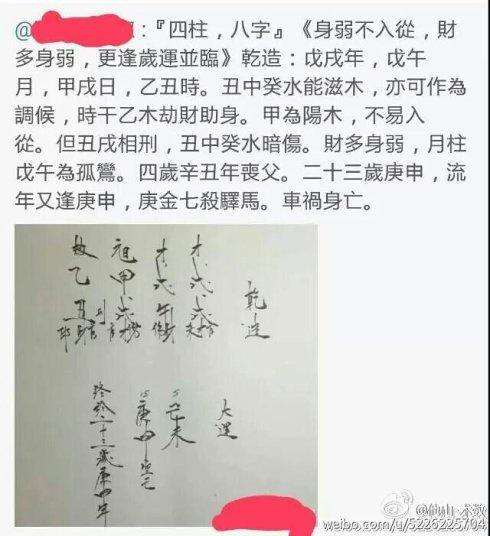 @
：『四柱，八字』《身弱不入從，財
多身弱，更逢歲運並臨》乾造：戊戌年，戊午
月，甲戌日，乙丑時。丑中癸水能滋木，亦可作為
調候，時干乙木劫財助身。甲為陽木，不易入
從。但丑戌相刑，丑中癸水暗傷。財多身弱，月柱
戊午為孤鸞。四歲辛丑年喪父。二十三歲庚申，流
年又逢庚申，庚金七殺驛馬。車禍身亡。
乾造
才戊戌
才戊午
甲戌
乙丑
大運
5
未
15
庚申
終於二十三歲庚申年
weibo.com/u/5226225704